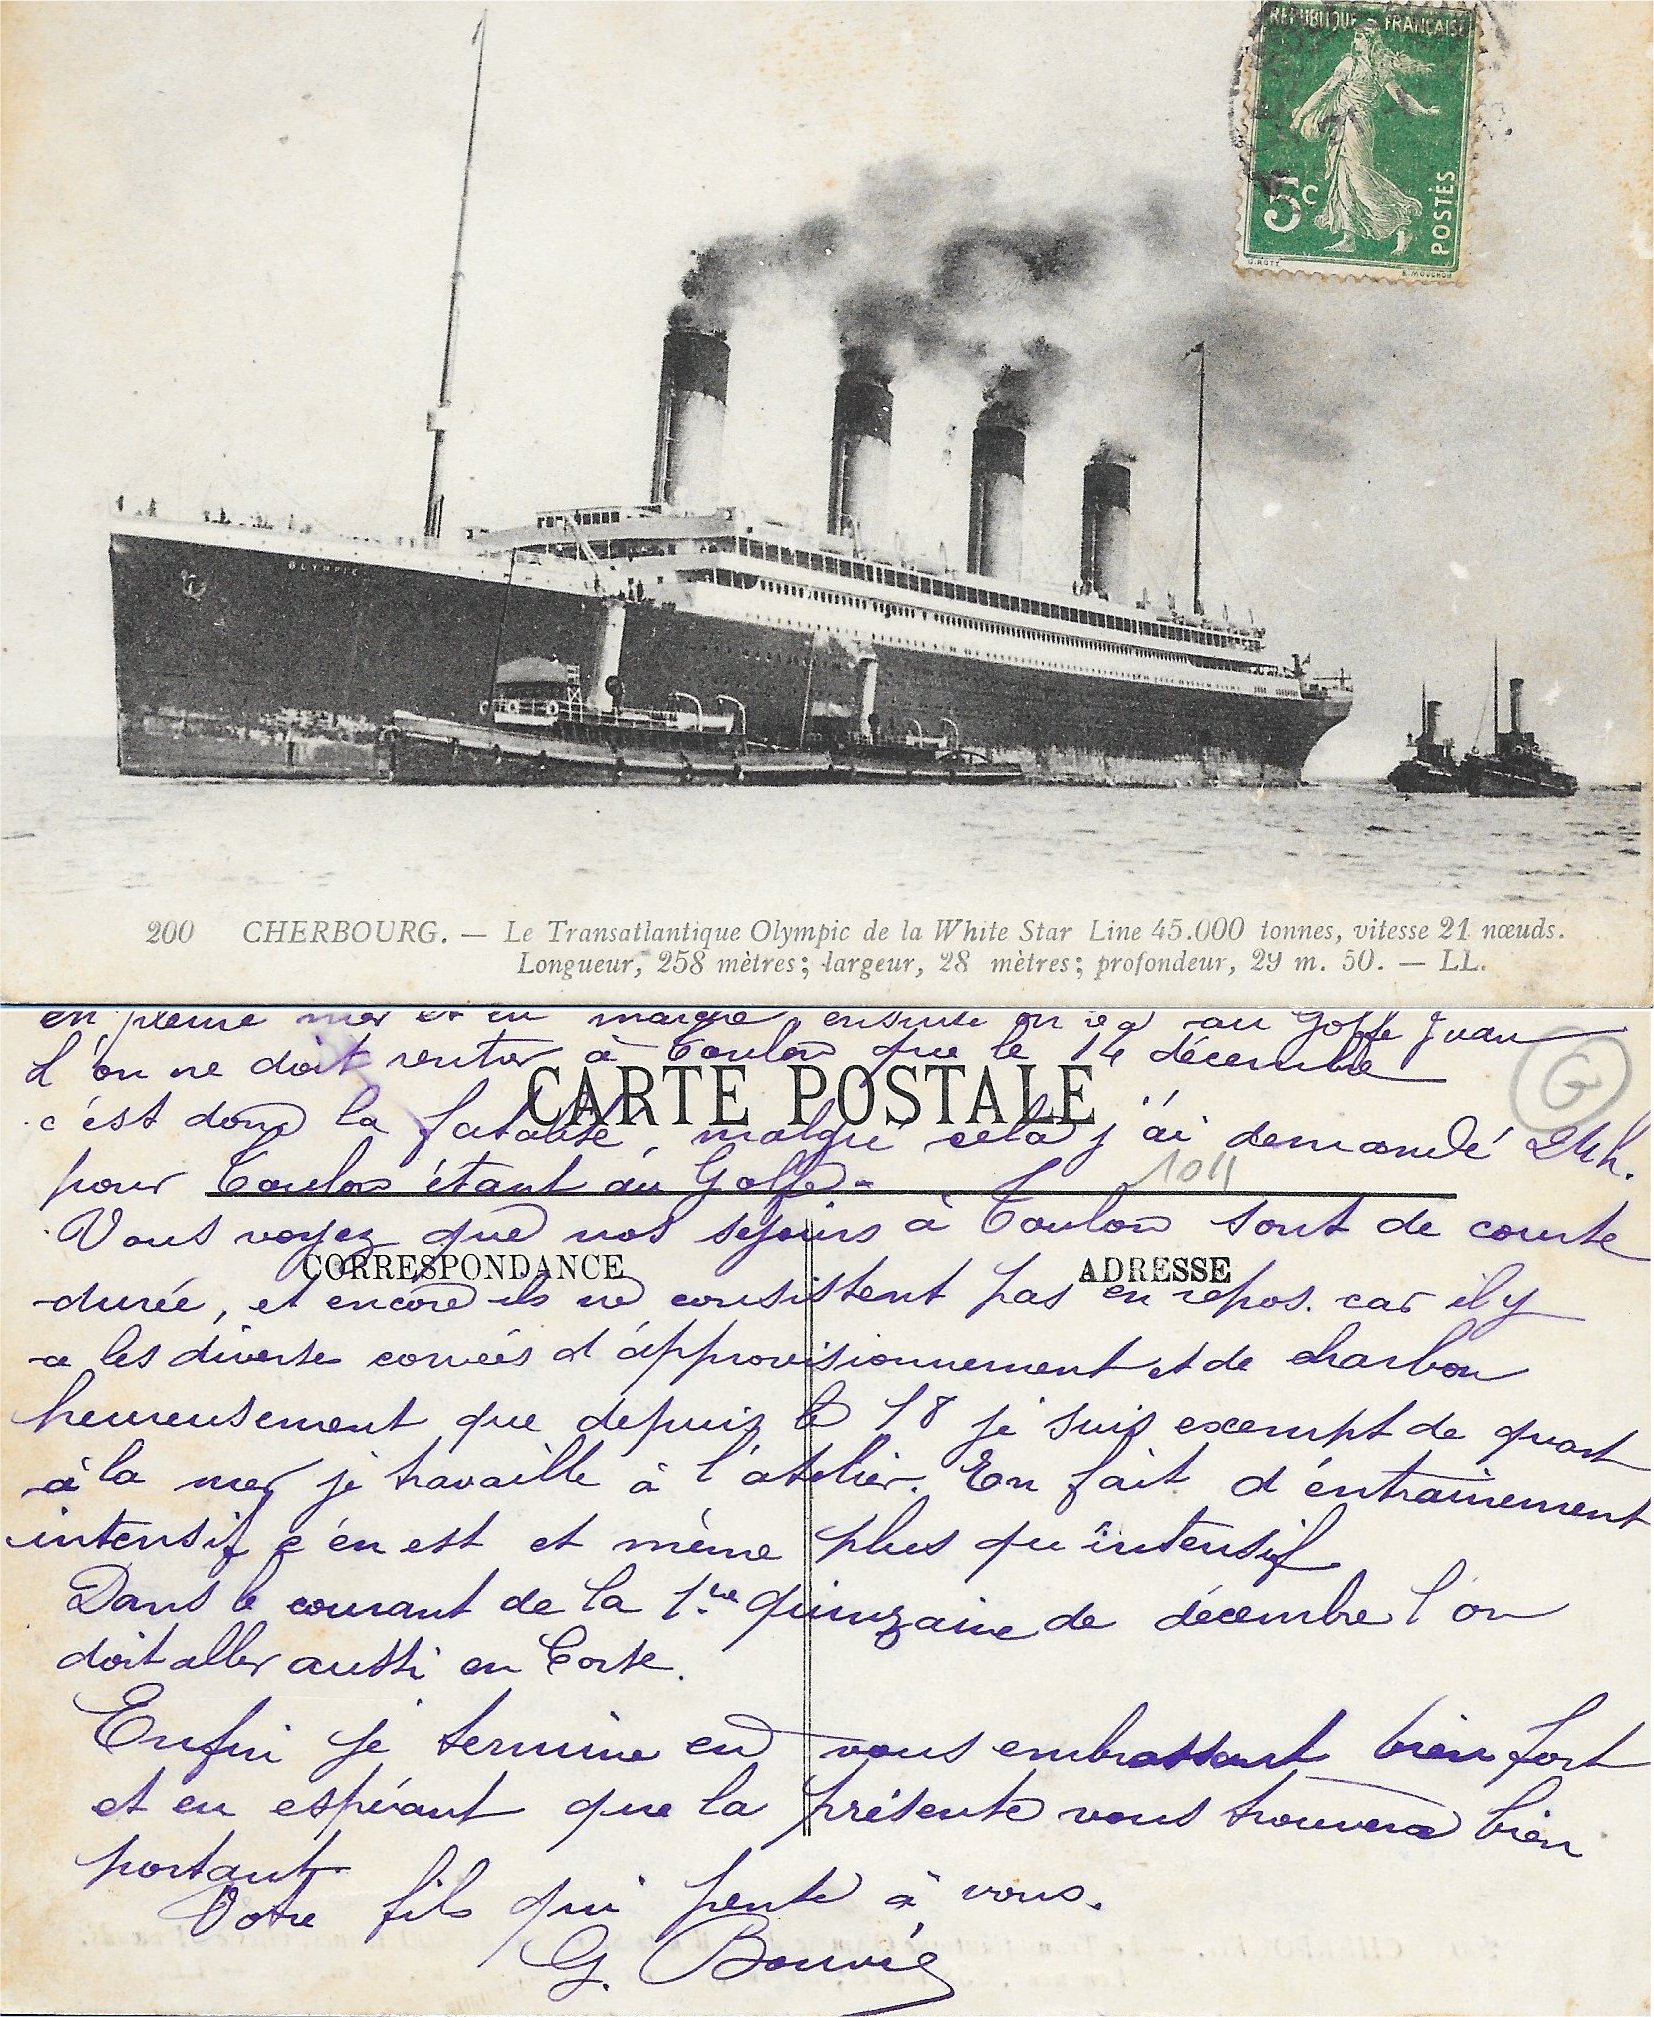 REPUBLIQUE FRANÇAISE
5c
POSTES
O. ROTY
E. MOUCHON
OLYMPIC
200 CHERBOURG. — Le Transatlantique Olympic de la White Star Line 45.000 tonnes, vitesse 21 nœuds.
Longueur, 258 mètres; largeur, 28 mètres; profondeur, 29 m. 50. — LL.
en pleine mer et en marche, ensuite on va au Golfe Juan
L'on ne doit rentrer à Toulon que le 14 décembre
G
CARTE POSTALE
c'est donc la fatalité, malgré cela j'ai demandé 24h.
pour Toulon étant au Golfe -
1011
Vous voyez que nos sejours à Toulon sont de courte
CORRESPONDANCE
ADRESSE
durée, et encore ils ne consistent pas en repos. car il y
a les diverse corvées d'approvisionnement et de charbon
heureusement que depuis le 18 je suis exempt de quart
à la mer je travaille à l'atelier. En fait d'entrainement
intensif c'en est et même plus qu'intensif
Dans le courant de la 1ère quinzaine de décembre l'on
doit aller aussi en Corse.
Enfin je termine en vous embrassant bien fort
et en espérant que la présente vous trouvera bien
portant
Votre fils qui pense à vous.
G. Bouvié